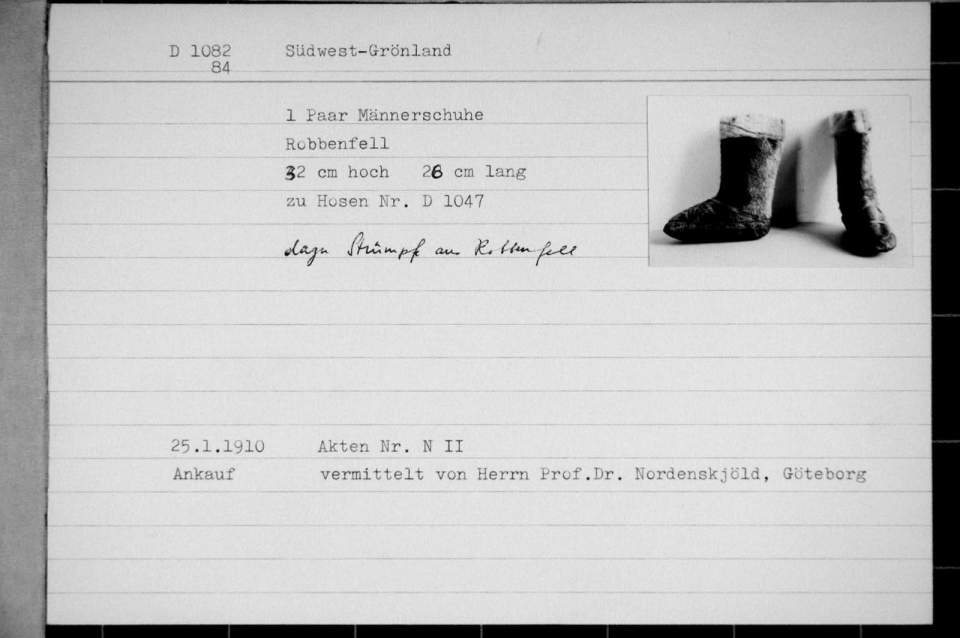 D 1082 Südwest-Grönland
84
1 Paar Männerschuhe
Robbenfell
32 cm hoch 26 cm lang
zu Hosen Nr. D 1047
dazu Strümpfe aus Robbenfell
25.1.1910 Akten Nr. N II
Ankauf vermittelt von Herrn Prof.Dr. Nordenskjöld, Göteborg